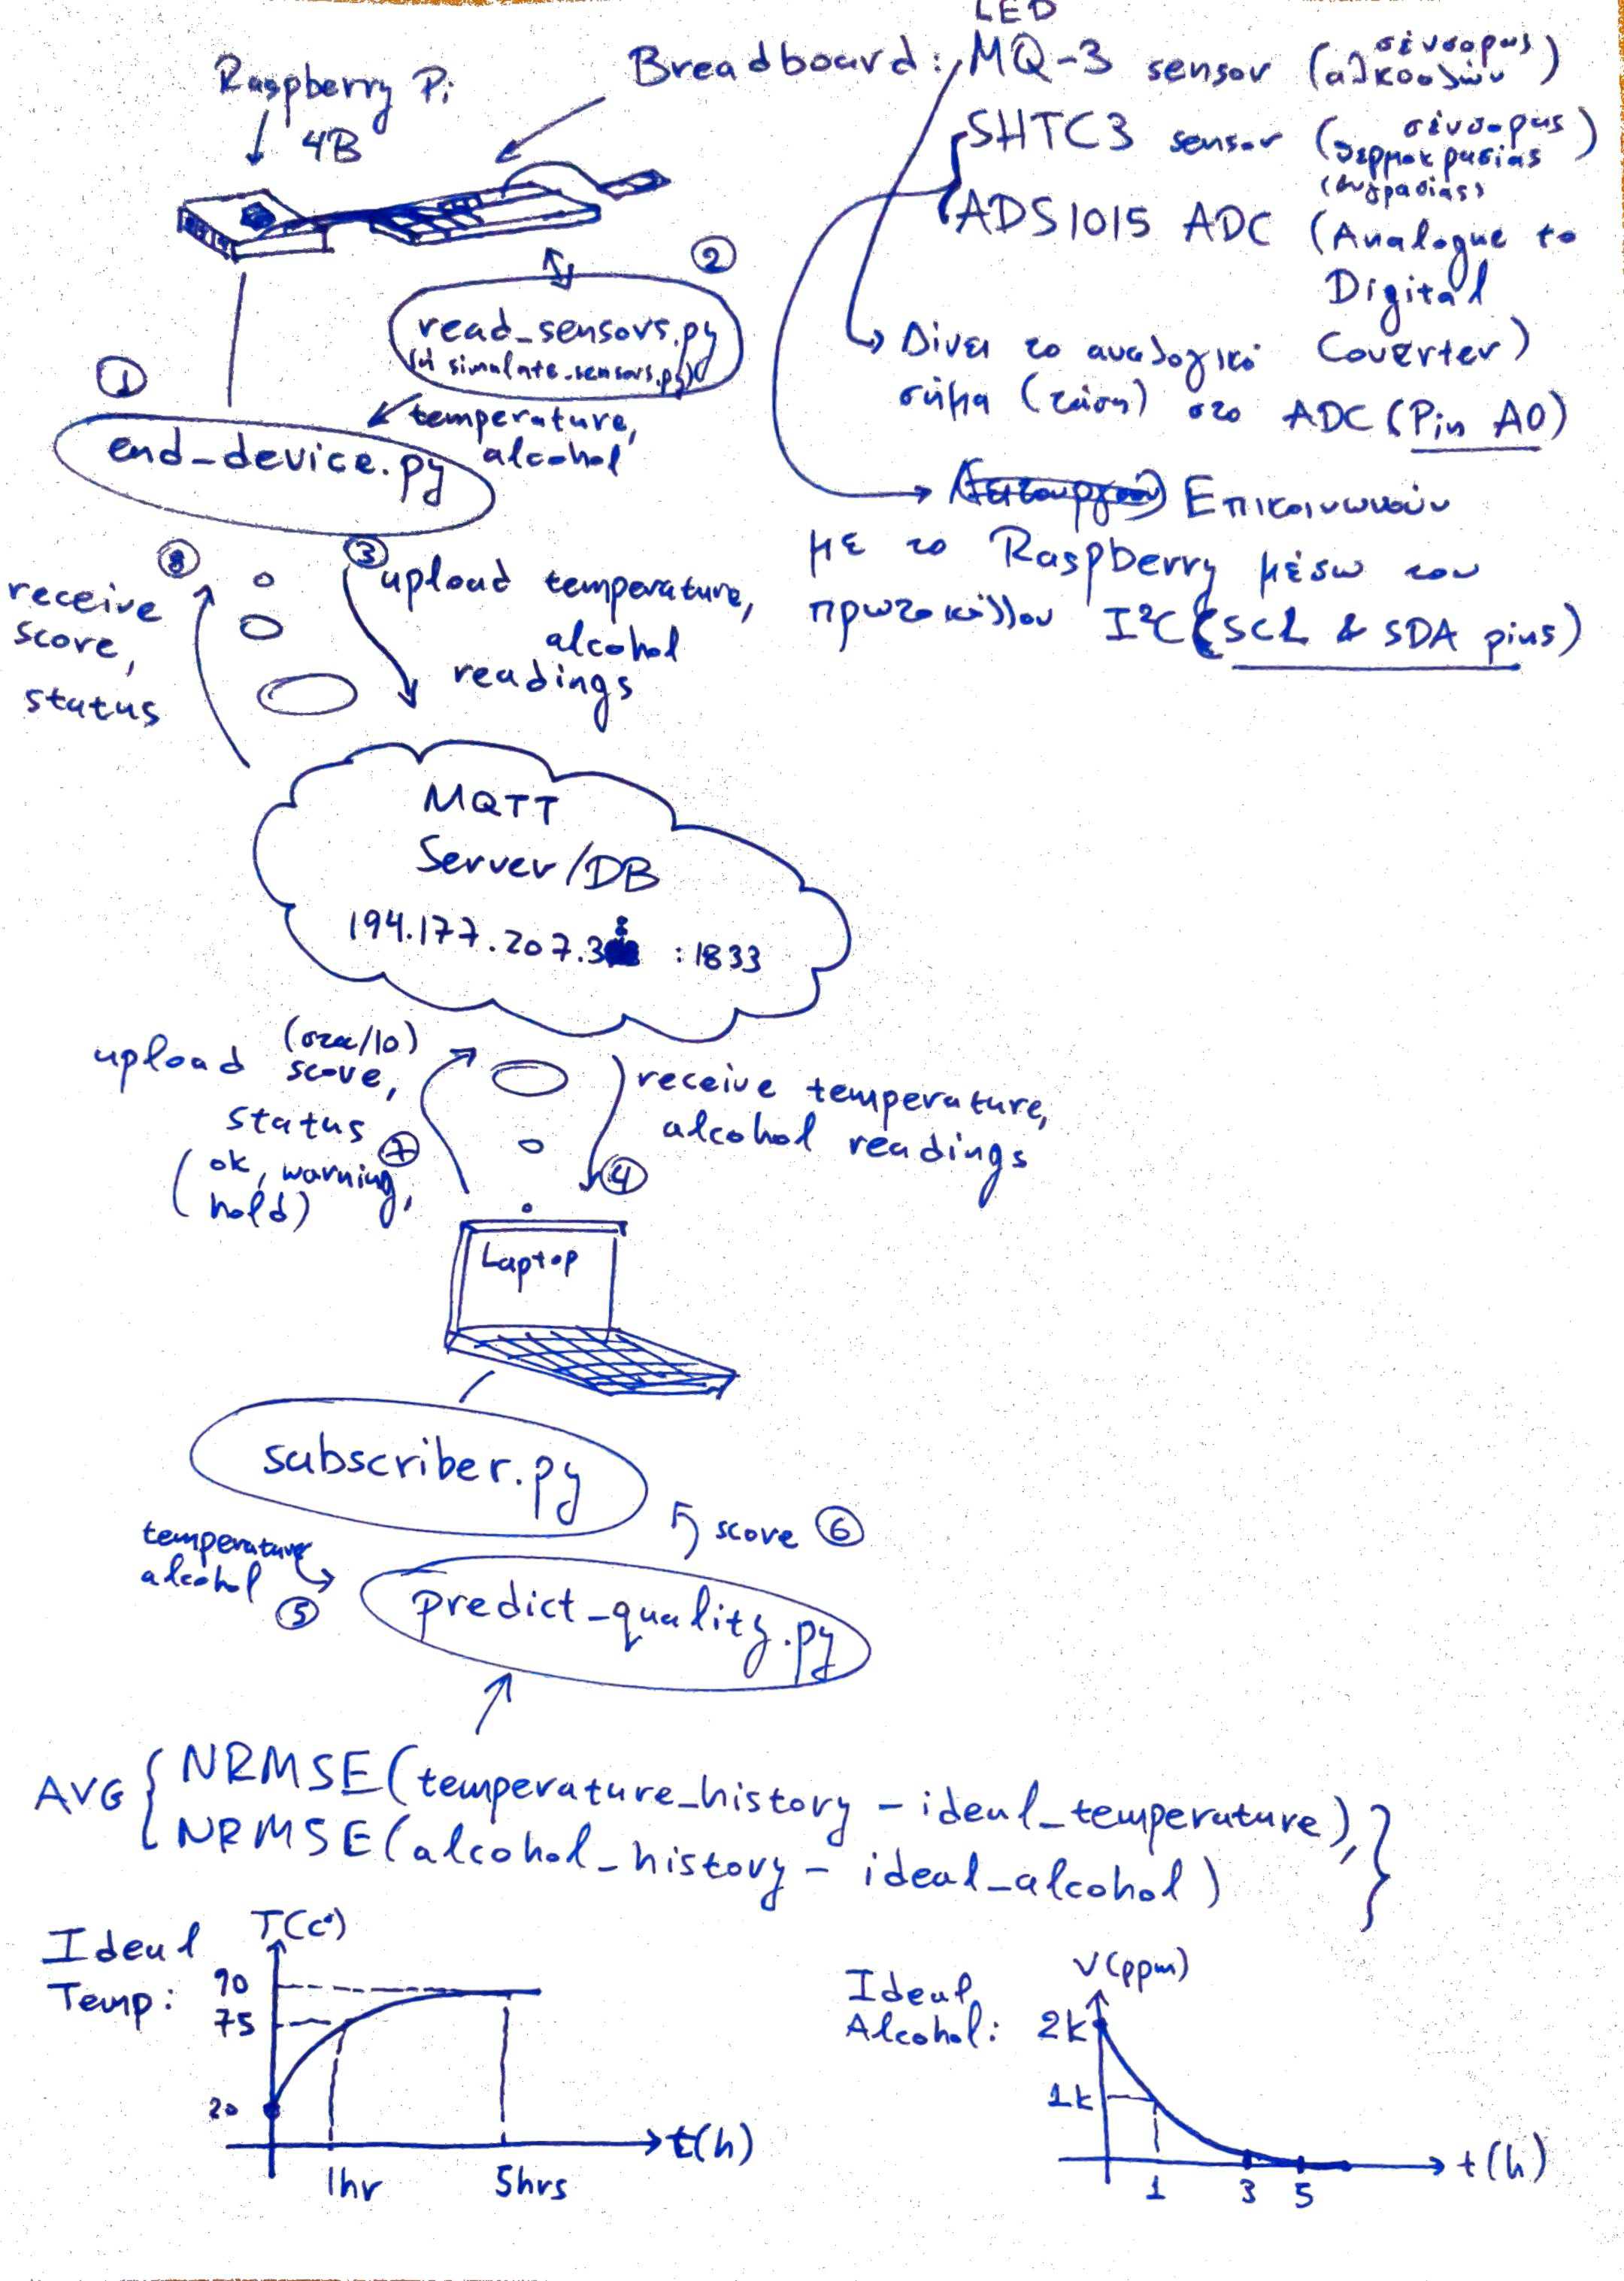 LED
Raspberry Pi
4B
Breadboard: MQ-3 sensor (σένσορας
αλκοολών)
SHTC3 sensor (σένσορας
θερμοκρασίας)
(υγρασίας)
ADS1015 ADC (Analogue to
Digital
Converter)
Δίνει το αναλογικό
σήμα (τάση) στο ADC (Pin A0)
Επικοινωνούν
με το Raspberry μέσω του
πρωτοκόλλου I²C (SCL & SDA pins)
②
read_sensors.py
(ή simulate_sensors.py)
temperature,
alcohol
①
end_device.py
③ upload temperature,
alcohol
readings
⑧
receive
score,
status
MQTT
Server/DB
194.177.207.3 :1833
upload (στα/10)
score,
status ⑦
(ok, warning,
hold)
receive temperature,
alcohol readings
④
Laptop
subscriber.py
score ⑥
temperature
alcohol
⑤
predict_quality.py
AVG { NRMSE(temperature_history - ideal_temperature),
NRMSE(alcohol_history - ideal_alcohol) }
Ideal
Temp:
T(c°)
90
75
20
1hr
5hrs
t(h)
Ideal
Alcohol:
V(ppm)
2k
1k
1
3
5
t(h)